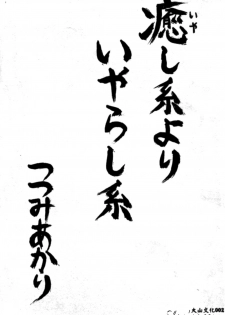 癒し系より
いやらし系
つつみあかり
火山文化002